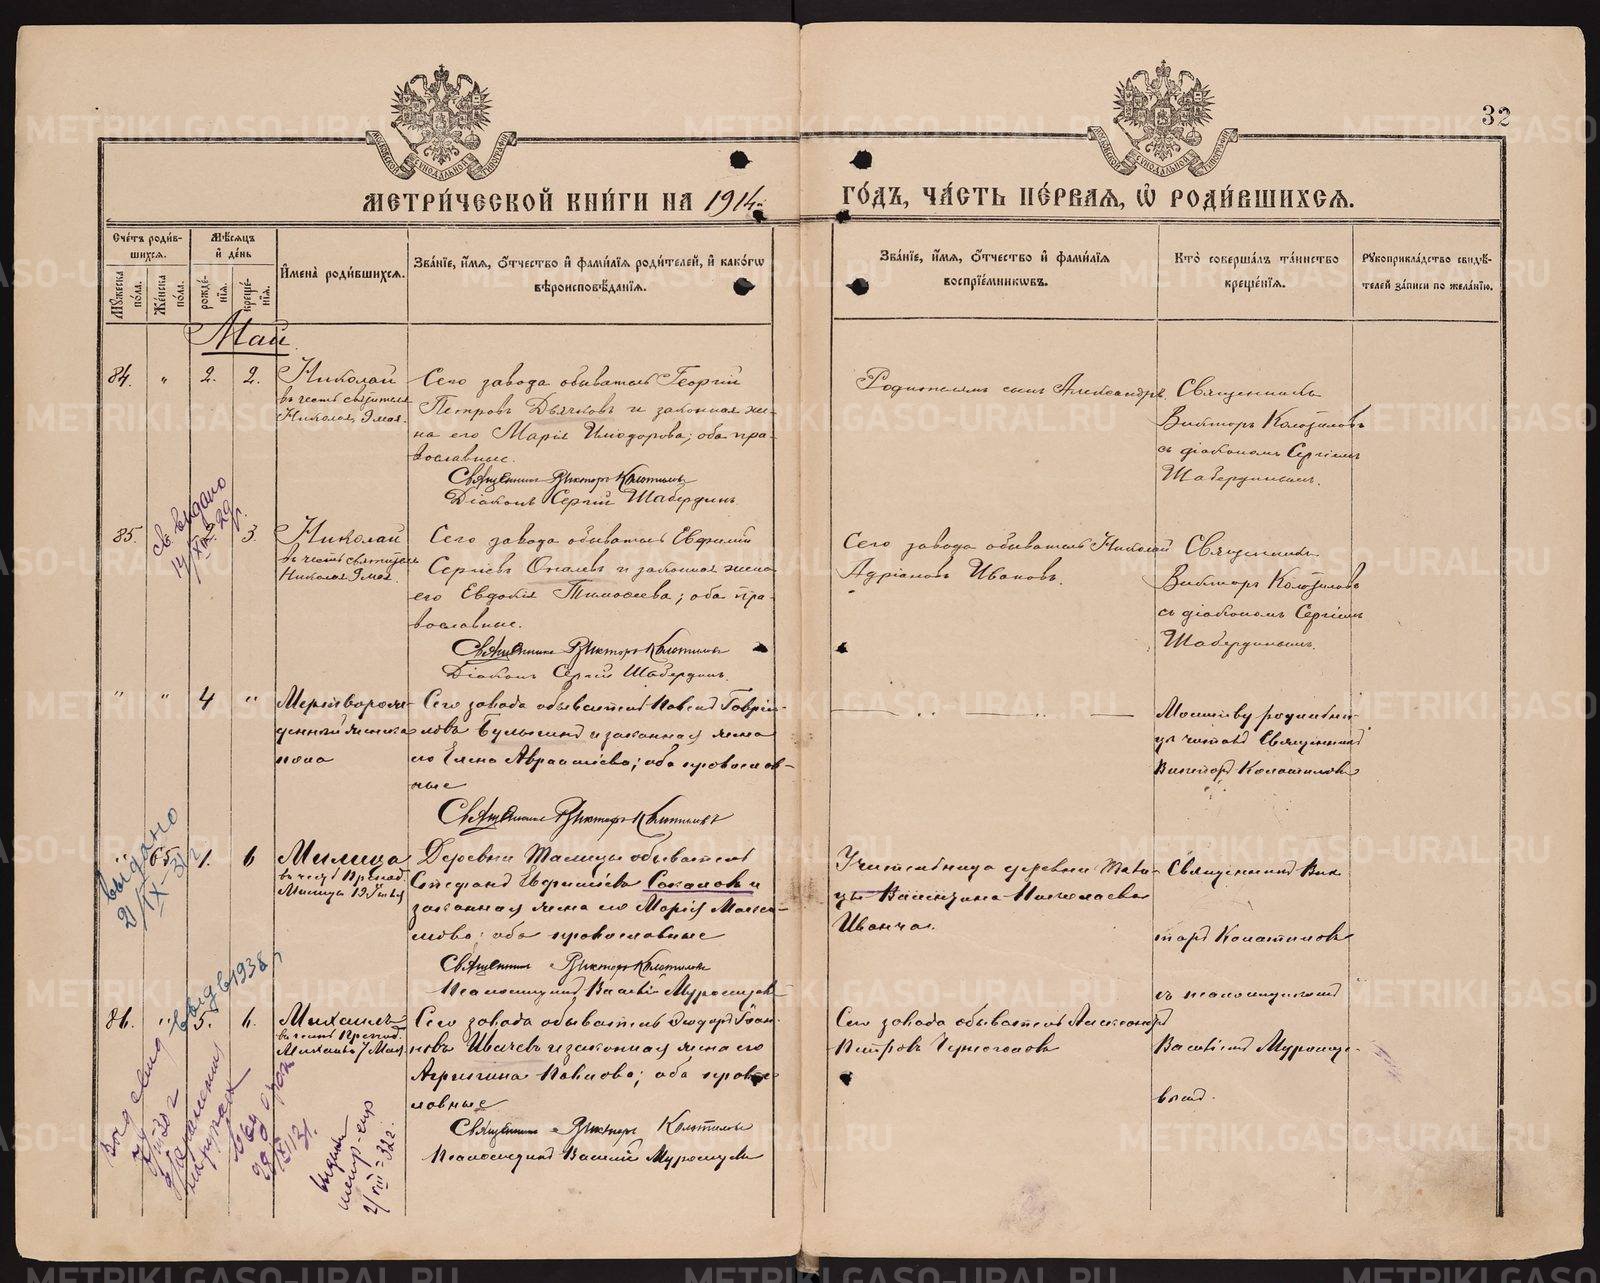 32
МЕТРИ́ЧЕСКОЙ КНИ́ГИ НА 1914
ГО́ДЪ, ЧА́СТЬ ПЕ́РВАЯ, Ѡ РОДИ́ВШИХСЯ.
Сче́тъ роди́в-
шихся.
Мѣ́сяцъ
и҆ де́нь
Мꙋ́жеска
по́ла.
Же́нска
по́ла.
рожде́-
нїѧ.
креще́-
нїѧ.
И҆мена̀ роди́вшихся.
Зва́нїе, и҆́мѧ, ѻ҆́тчество и҆ фами́лїѧ роди́телей, и҆ како́гѡ
вѣроисповѣ́данїѧ.
Зва́нїе, и҆́мѧ, ѻ҆́тчество и҆ фами́лїѧ
воспрїе́мникѡвъ.
Кто̀ соверша́лъ та́инство
креще́нїѧ.
Рꙋкоприкла́дство свидѣ́-
телей за́писи по жела́нїю.
Май
84. " 2. 2.
Николай
въ честь святителя
Николая, 9 мая.
Сего завода обыватель Георгій
Петровъ Дьячковъ и законная же-
на его Марія Исидорова; оба пра-
вославные.
Священникъ Викторъ Колотиловъ
Діаконъ Сергій Шабердинъ
Родителямъ сынъ Александръ.
Священникъ
Викторъ Колотиловъ
съ діакономъ Сергіемъ
Шабердинымъ.
85. 3.
св. выдано
Николай
въ честь святителя
Николая 9 мая.
Сего завода обыватель Евфимій
Сергіевъ Опалевъ и законная жена
его Евдокія Тимофеева; оба пра-
вославные.
Священникъ Викторъ Колотиловъ
Діаконъ Сергій Шабердинъ.
Сего завода обыватель Николай
Адріановъ Ивановъ.
Священникъ
Викторъ Колотиловъ
съ діакономъ Сергіемъ
Шабердинымъ.
" " 4 "
Мертворож-
денный женска
пола
Сего завода обыватель Павелъ Гаврі-
ловъ Булыгинъ и законная жена
его Елена Авраміева; оба православ-
ные
Священникъ Викторъ Колотиловъ
Молитву родильни-
цѣ читалъ Священникъ
Викторъ Колотиловъ
" 65 1. 6
выдано
21/IX-31 г
Милица
въ честь Препод.
Милицы 19 Іюля
Деревни Талицы обыватель
Стефанъ Евфиміевъ Соколовъ и
законная жена его Марія
оба православные
Священникъ Викторъ Колотиловъ
Псаломщикъ Василій
Учительница деревни Тали-
цы Валентина Николаева
Иванча.
Священникъ Вик-
торъ Колотиловъ
съ псаломщикомъ
86. " 5. 6.
выд в 1938 г
Михаилъ
въ честь Препод.
Михаила 7 Мая
Сего завода обыватель Ѳеодоръ Іоан-
новъ Ивачевъ и законная жена его
Агриппина Павлова; оба право-
славные
Священникъ Викторъ Колотиловъ
Псаломщикъ Василій
Сего завода обыватель Александръ
Петровъ Черноголовъ
Василіемъ